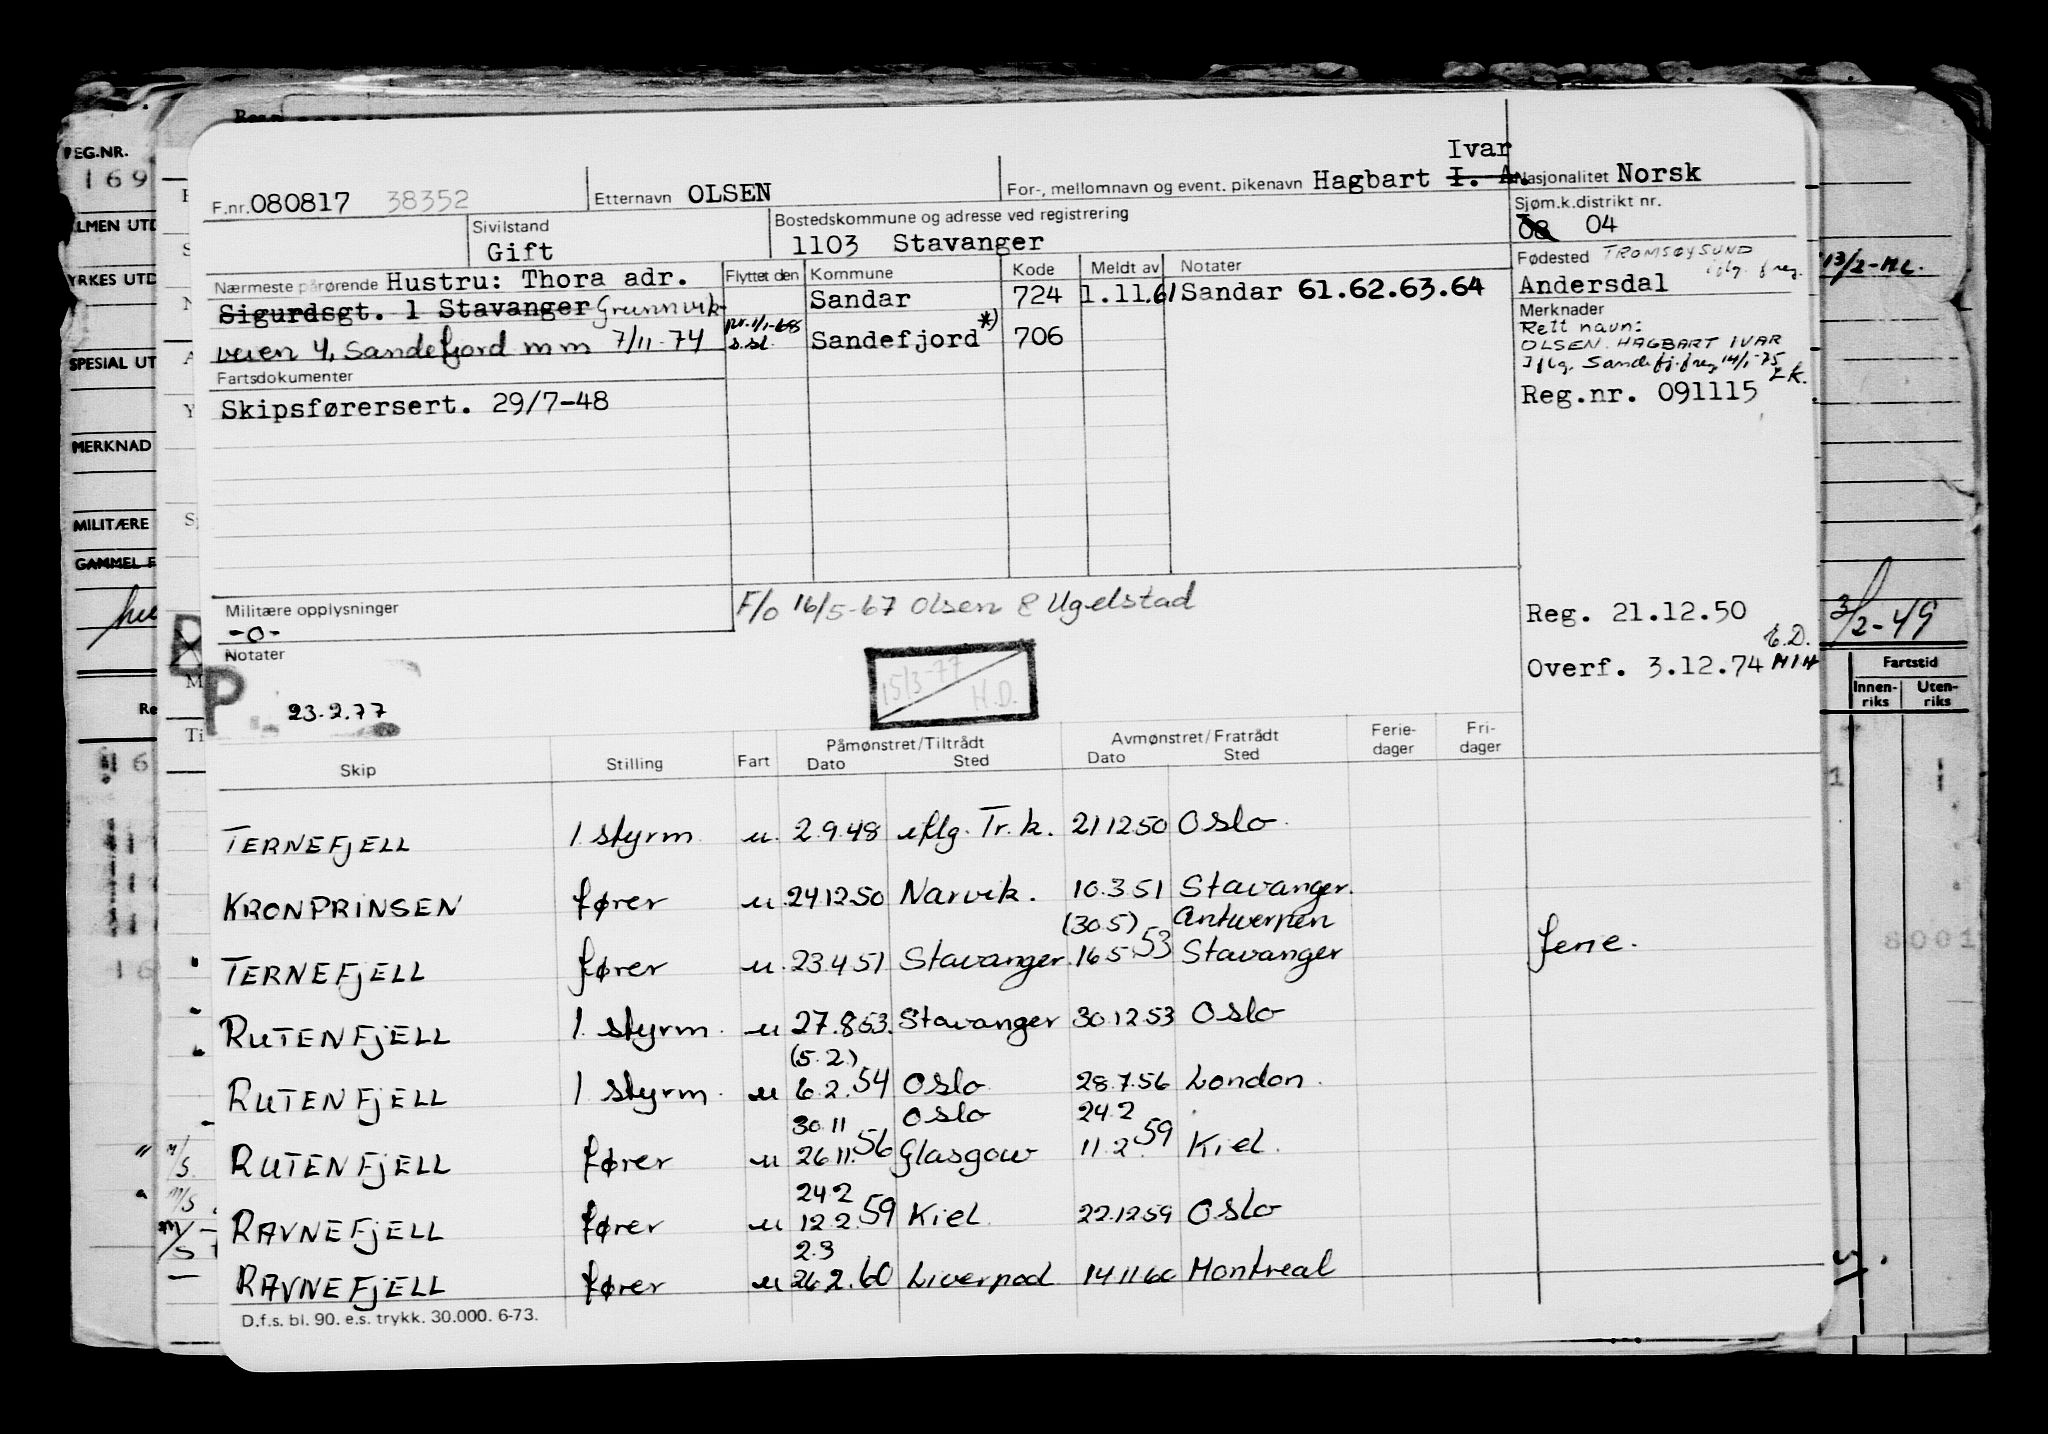 EG.NR.
169
LMEN UTD
YRKES UTD
SPESIAL UT
MERKNAD
MILITÆRE
GAMMEL F
Ivar
F.nr. 080817 38352 Etternavn OLSEN For-, mellomnavn og event. pikenavn Hagbart I. A. Nasjonalitet Norsk
Sivilstand Gift
Bostedskommune og adresse ved registrering
1103 Stavanger
Sjøm.k.distrikt nr.
08 04
Nærmeste pårørende Hustru: Thora adr.
Sigurdsgt. 1 Stavanger Grunnvik-
veien 4, Sandefjord mm 7/11-74
Flyttet den Kommune Kode Meldt av Notater
Sandar 724 1.11.61 Sandar 61.62.63.64
pr. 1/1-68 s.sl. Sandefjord *) 706
Fødested TROMSØYSUND
iflg. freg.
Andersdal
13/2-HL.
Merknader
Rett navn:
OLSEN. HAGBART IVAR
Iflg. Sandefj. freg 14/1-75
EK.
Reg.nr. 091115
Fartsdokumenter
Skipsførersert. 29/7-48
Militære opplysninger
-0-
F/o 16/5-67 Olsen & Ugelstad
Reg. 21.12.50
E.D.
Overf. 3.12.74 MIH
3/2-49
Notater
P
23.2.77
15/3-77
H.D.
Fartstid
Innen-riks Uten-riks
Skip Stilling Fart Påmønstret/Tiltrådt Dato Sted Avmønstret/Fratrådt Dato Sted Ferie-dager Fri-dager
TERNEFJELL 1 styrm. u. 2.9.48 iflg. Tr.k. 21 12 50 Oslo
KRONPRINSEN fører u. 24 12 50 Narvik. 10.3 51 Stavanger.
(30.5) Antwerpen
TERNEFJELL fører u. 23.4 51 Stavanger. 16 5 53 Stavanger ferie.
RUTENFJELL 1. styrm. u 27.8 53. Stavanger 30.12 53 Oslo
(5.2.)
RUTENFJELL 1 styrm. u 6.2.54 Oslo 28.7.56 London.
30 11 Oslo 24.2
RUTENFJELL fører u 26 11.56 Glasgow 11.2.59 Kiel.
24 2
RAVNEFJELL fører u 12 2.59 Kiel. 22.12 59 Oslo
2.3
RAVNEFJELL fører u 26 2.60 Liverpool 14 11 60 Montreal
D.f.s. bl. 90. e.s. trykk. 30.000. 6-73.